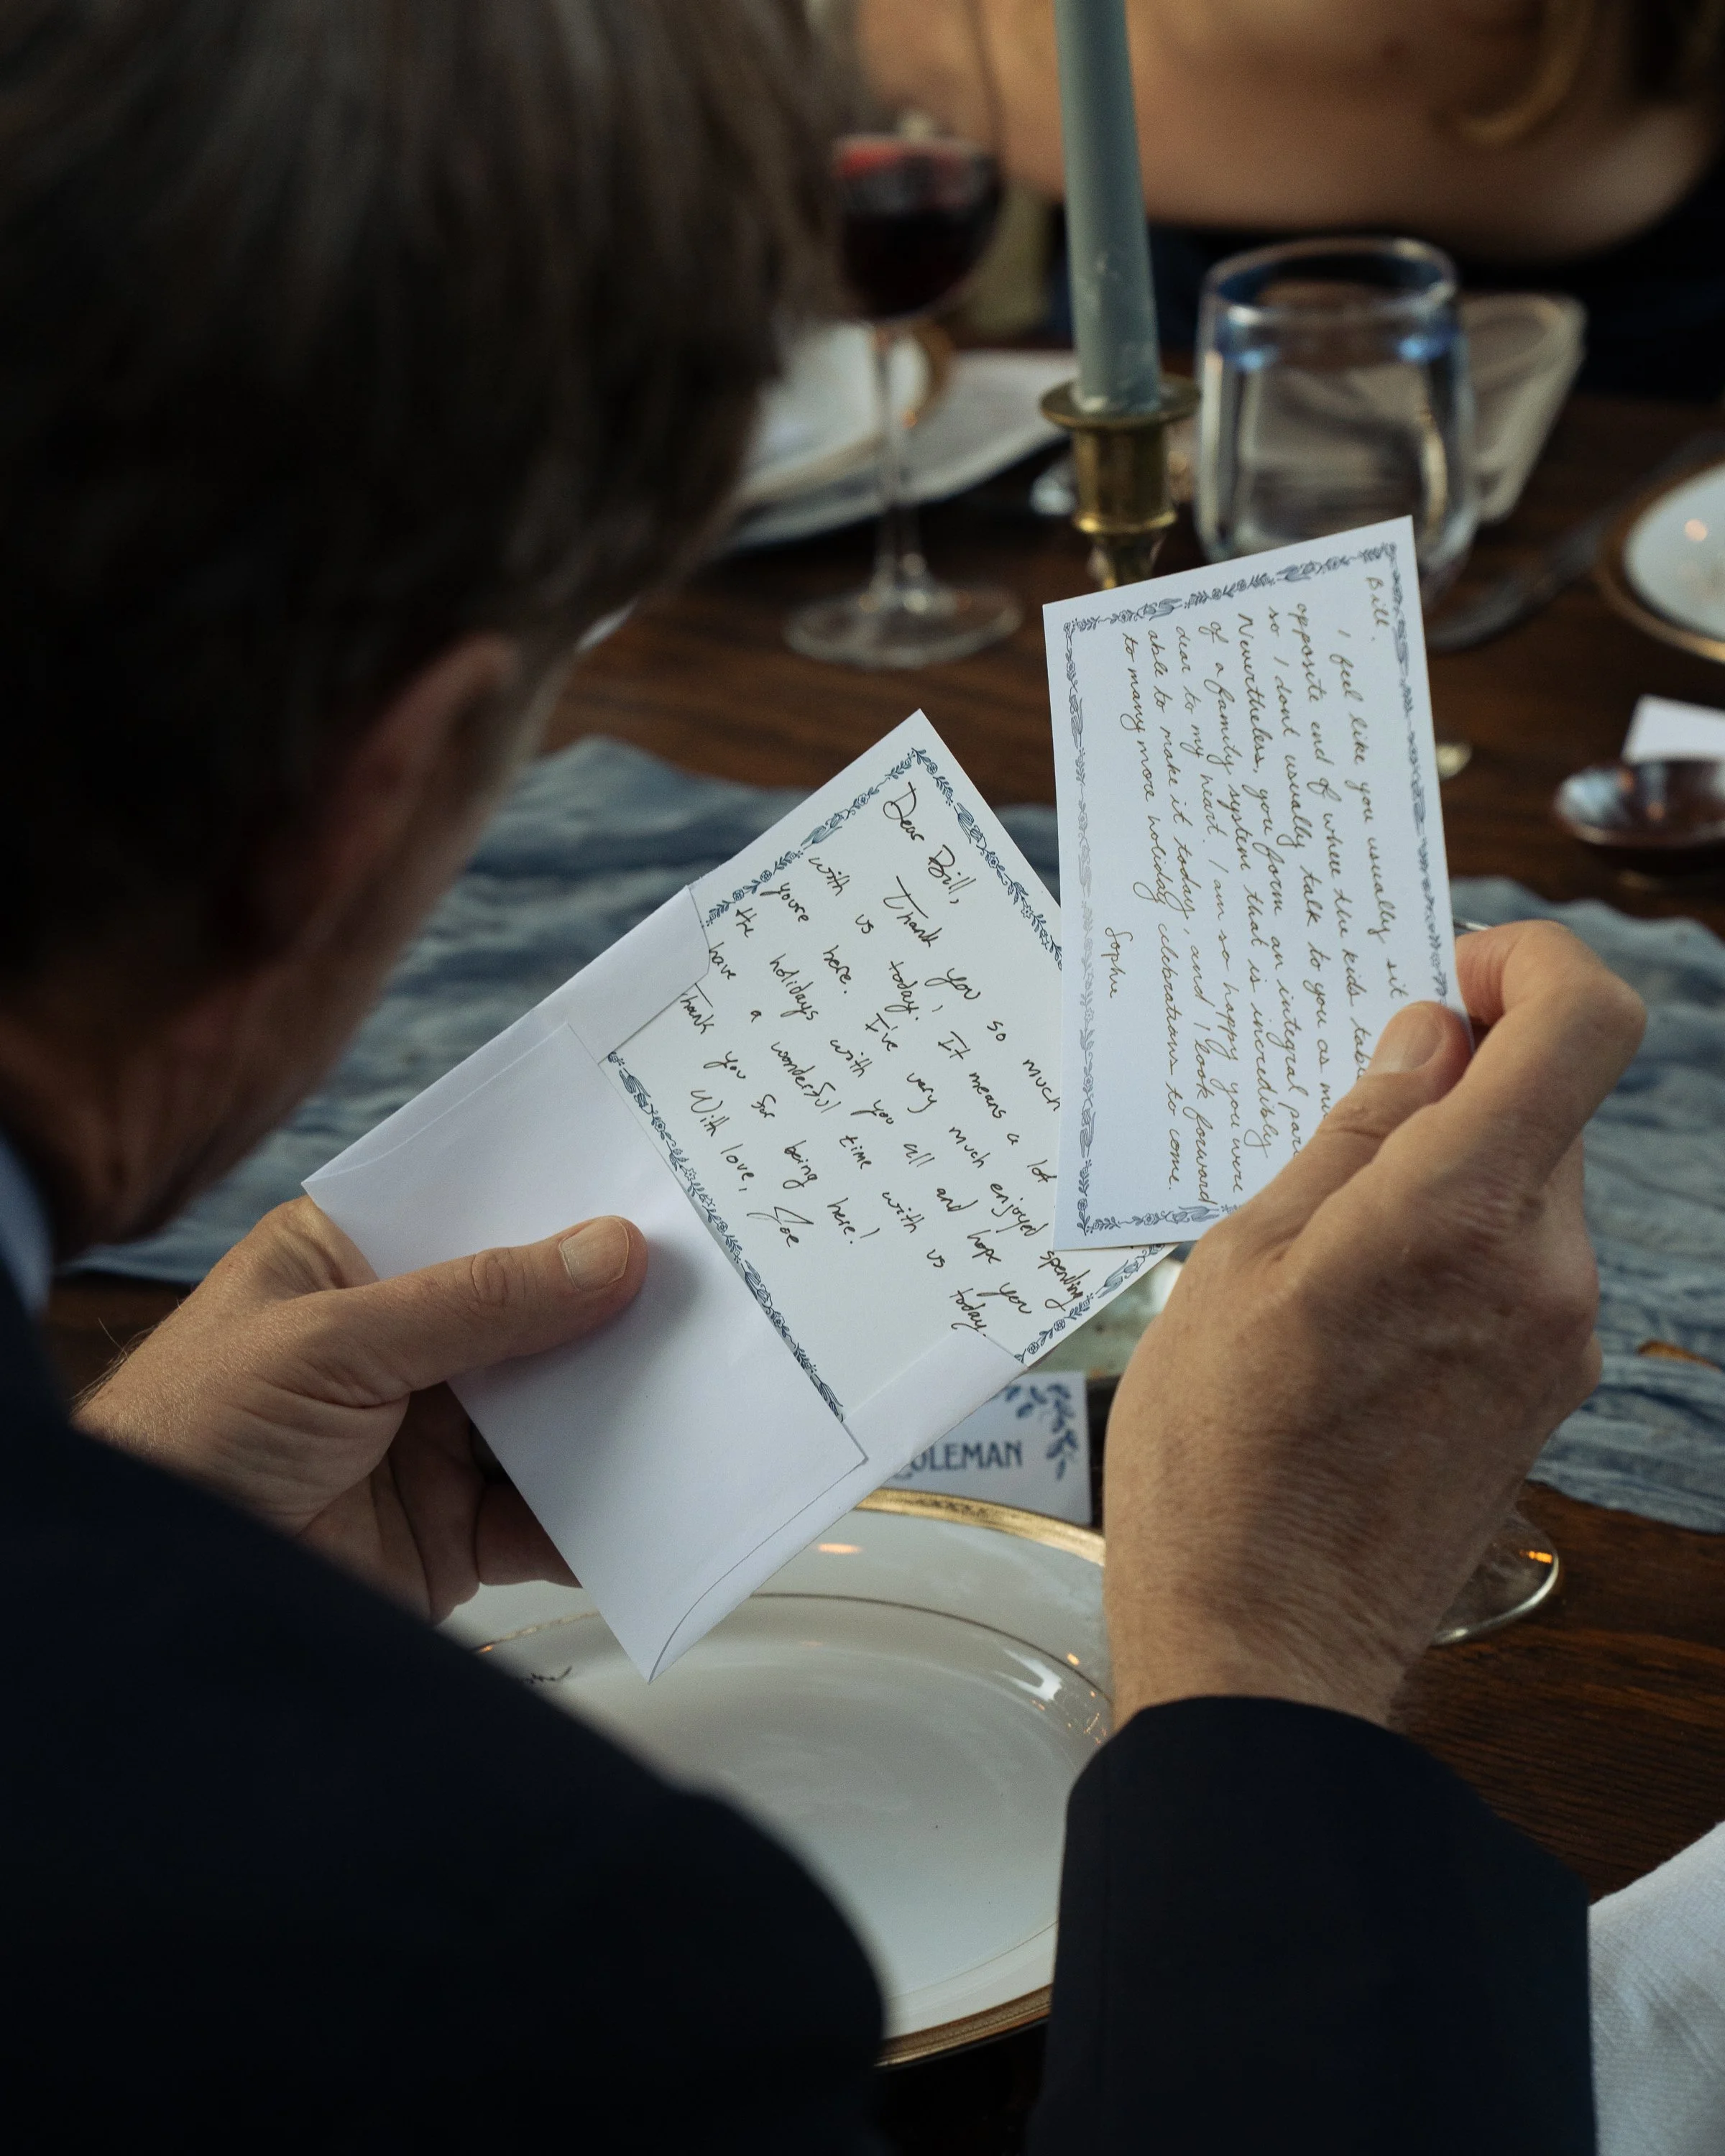 Dear Bill,
Thank you so much
with us today. It means a lot
youre here. I've very much enjoyed spending
the holidays with you all and hope you
have a wonderful time with us today.
Thank you for being here!
With love,
Joe
Bill,
I feel like you usually sit
opposite end of where the kids table
so I dont usually talk to you as
Nevertheless, you form an integral
of a family system that is incredibly
dear to my heart. I am so happy you were
able to make it today, and I look forward
to many more holiday celebrations to come.
Sophie
COLEMAN